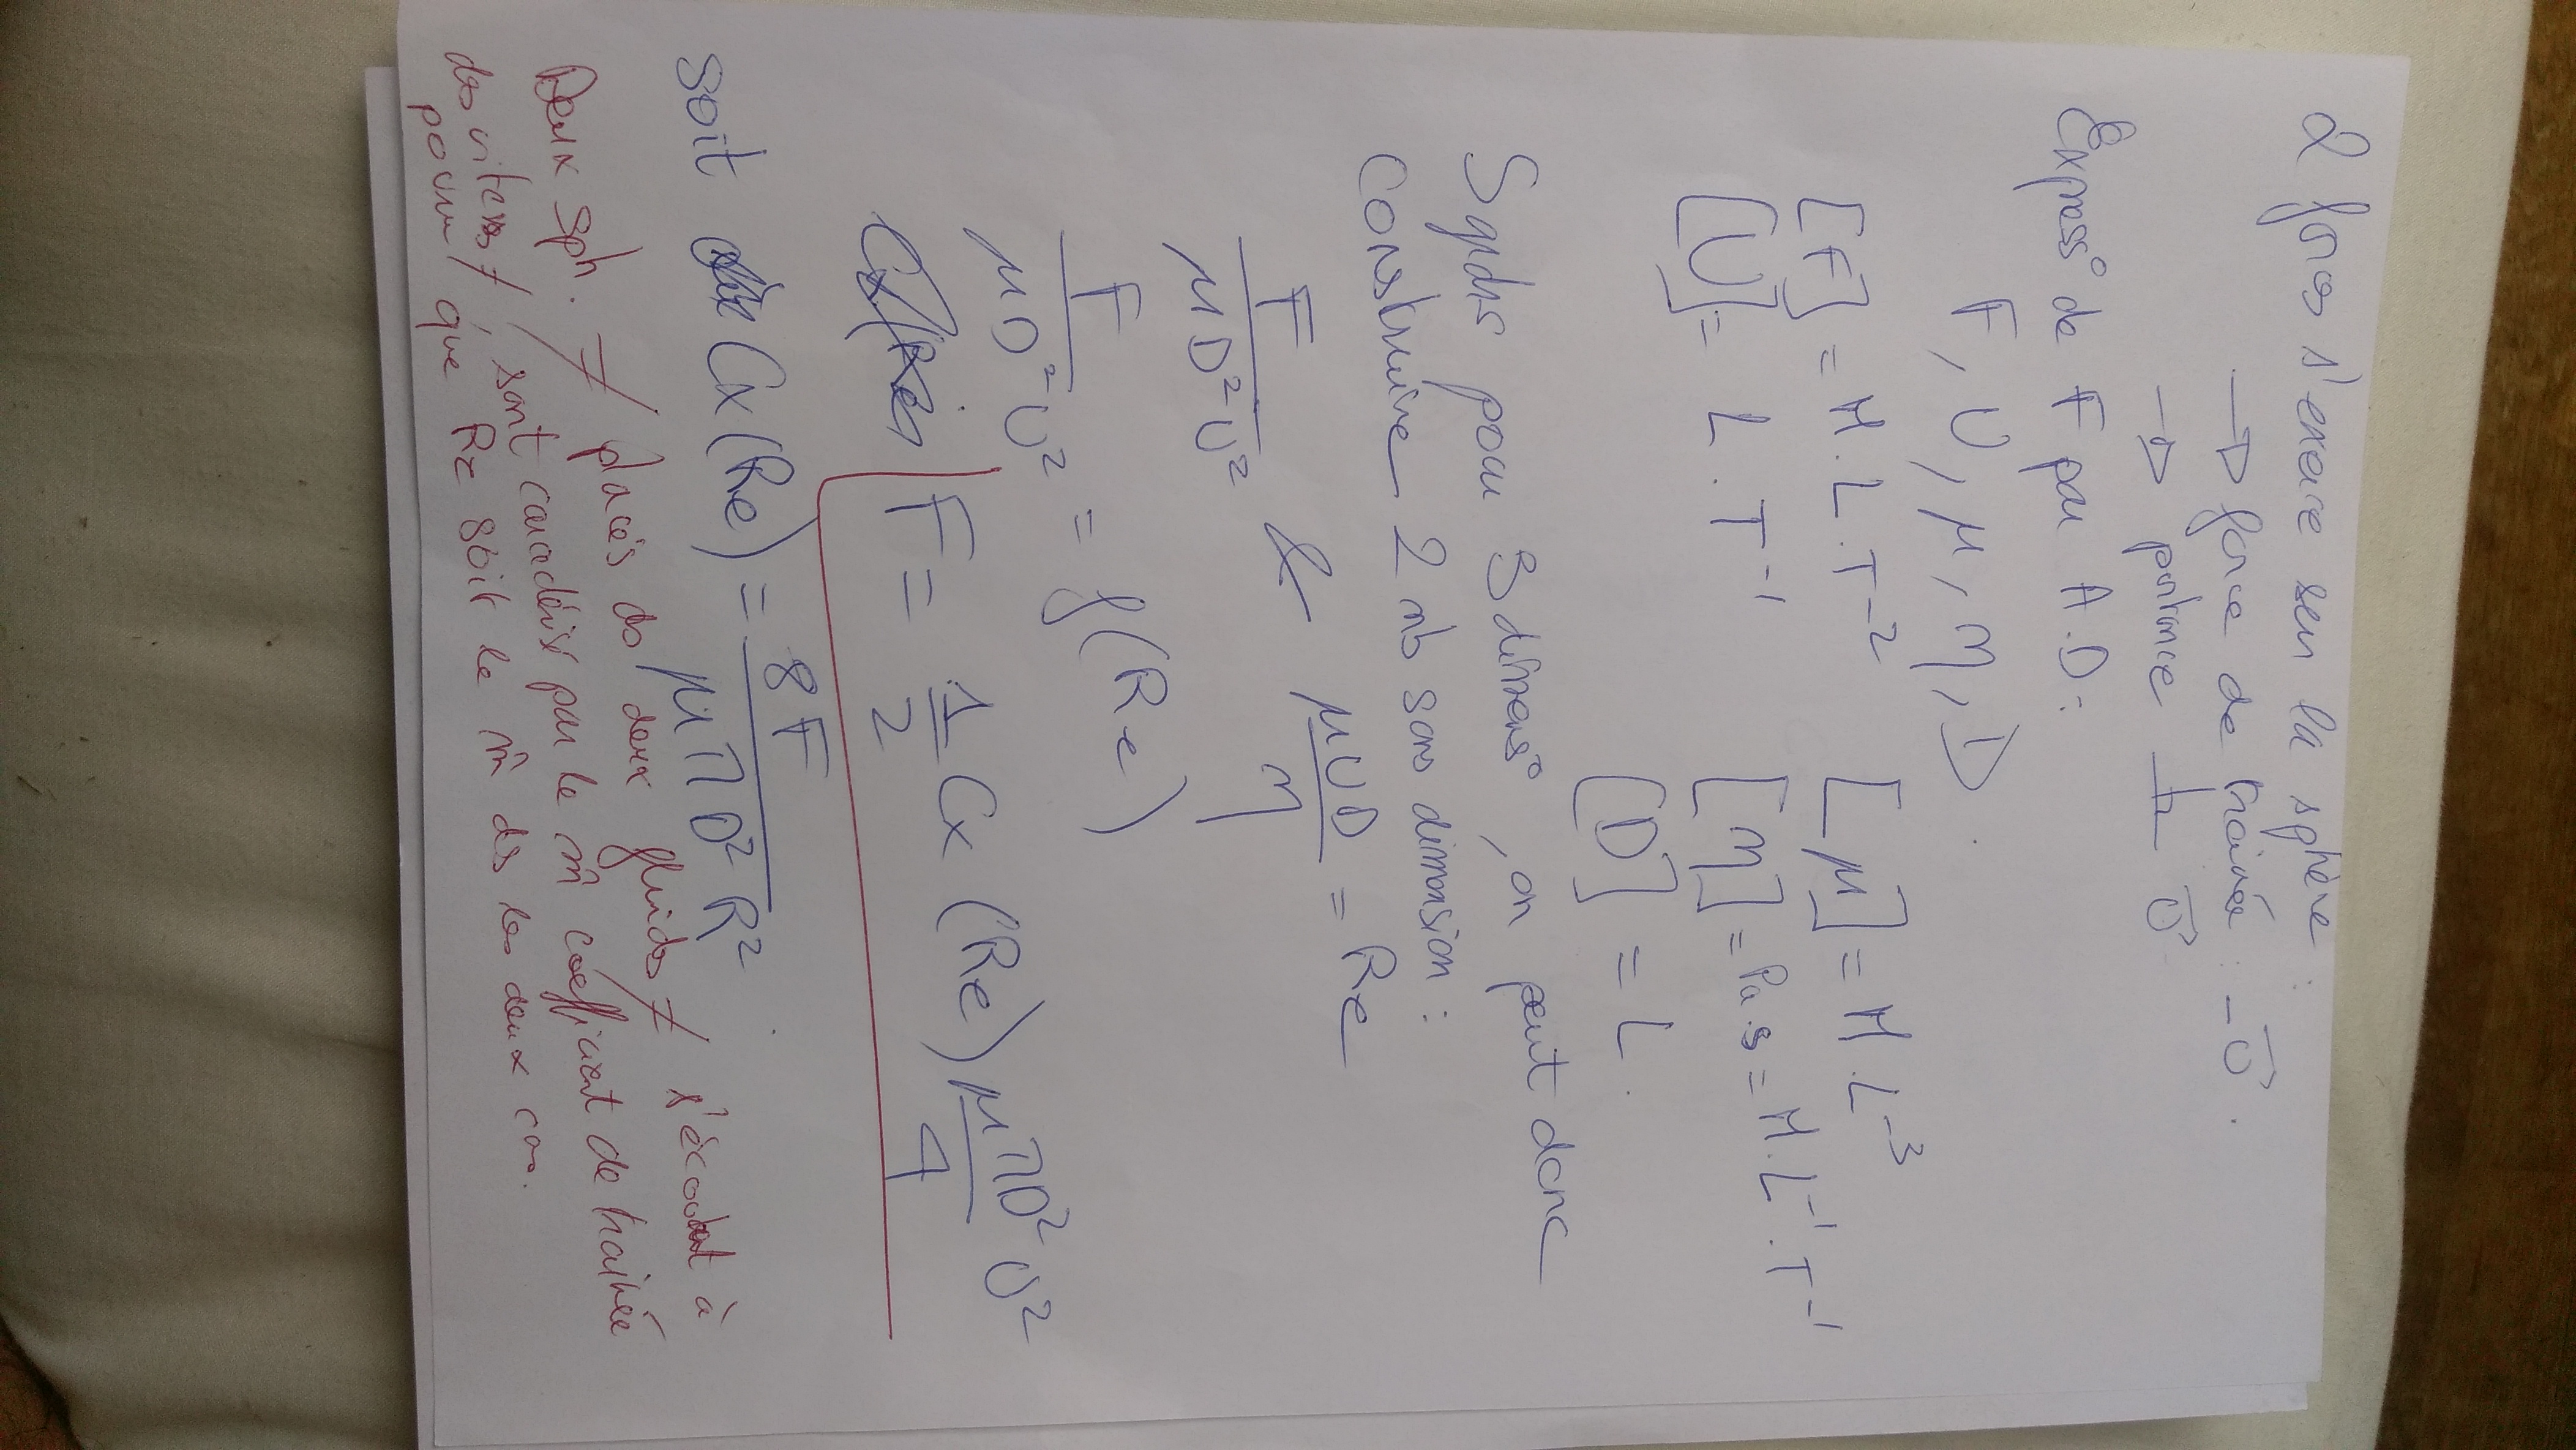 2 forces s'exerce sur la sphère :
→ force de traînée : -U⃗.
→ portance ⊥ U⃗
Express° de F par A.D :
F, U, μ, η, D.
[F] = M.L.T⁻² [μ] = M.L⁻³
[U] = L.T⁻¹ [η] = Pa.s = M.L⁻¹.T⁻¹
[D] = L.
5 gdrs pour 3 dimens°, on peut donc
construire 2 nb sans dimension :
F/(μD²U²) & μUD/η = Re
F/(μD²U²) = f(Re)
F = 1/2 Cx (Re) μπD²/4 U²
soit Cx (Re) = 8F/(μπD²R²)
Deux sph. ≠ placés ds deux fluides ≠ s'écoulant à
des vitesses ≠ sont caractérisé par le m̂ coefficient de traînée
pourvu que Re soit le m̂ ds les deux cas.